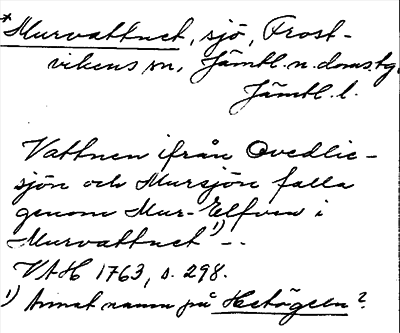 *Murvattnet, sjö, Frost-
vikens sn, Jämtl. n. doms.tg,
Jämtl. l.
Vattnen ifrån Qvedlie-
sjön och Mursjön falla
genom Mur-Elfven i
Murvattnet ¹) –.
VAH 1763, s. 298.
¹) Annat namn på Hetögeln?